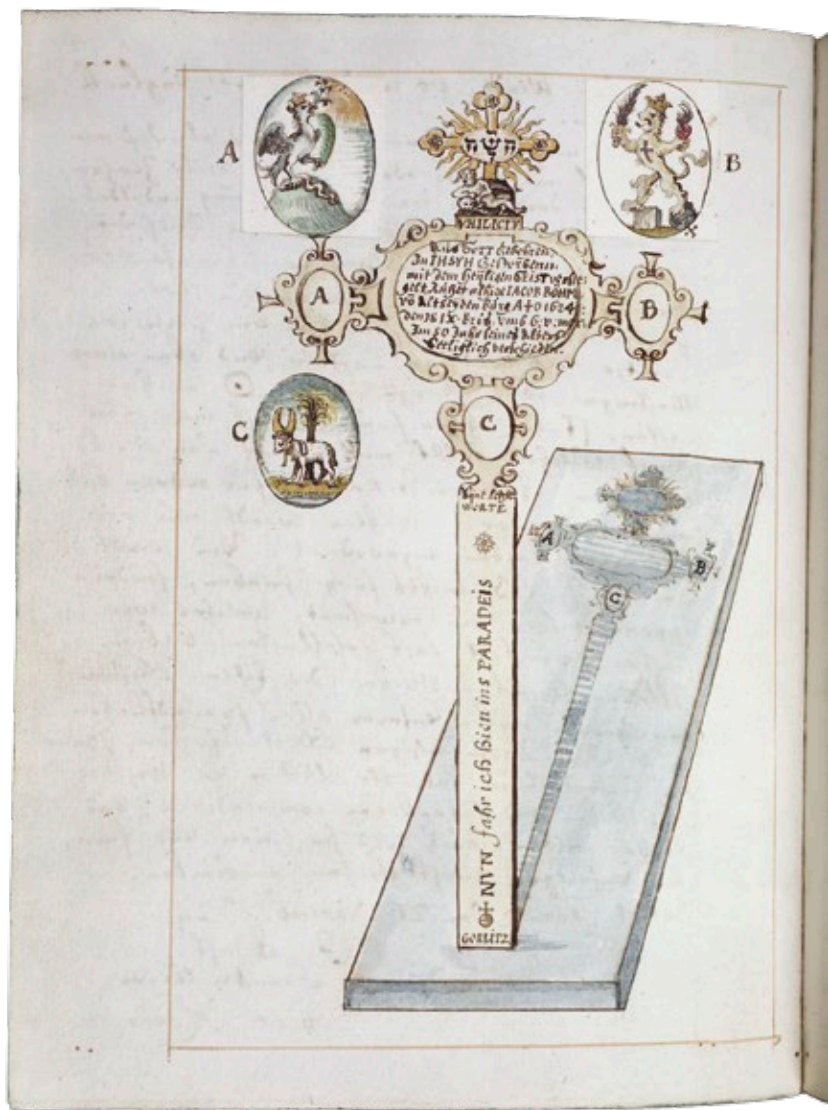 A
השה
B
GOTT Geboren:
In IHSVH Gestorben:
mit dem heyligen GEIST versie-
gelt Ruhet alhie IACOB BÖHM
vō Altseydenburg A†O 1624
den 16 IX
Im 50 Jahr seines Alters
Seeliglich verschieden.
A
B
C
C
letzte
WORTE
NVN fahr ich hien ins PARADEIS
GÖRLITZ
A
B
C